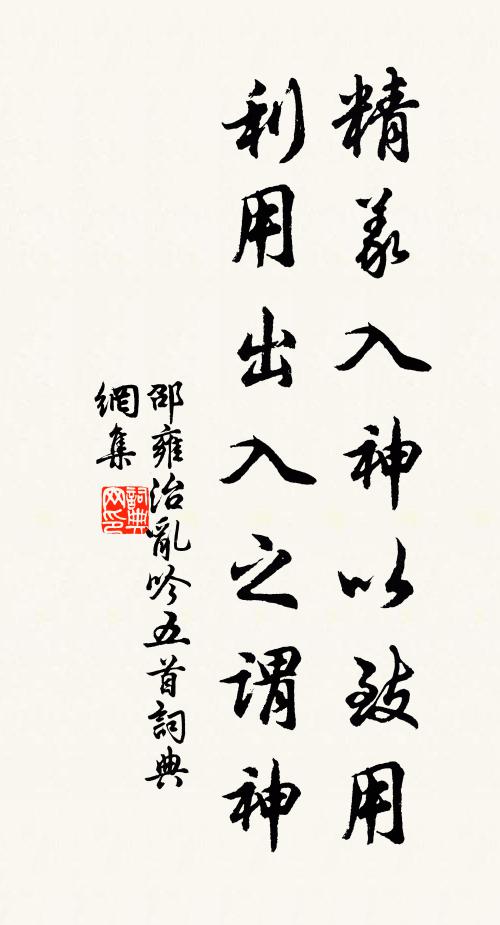 精義入神以致用
利用出入之謂神
邵雍治亂吟五首詞典
網集
詞典
网印